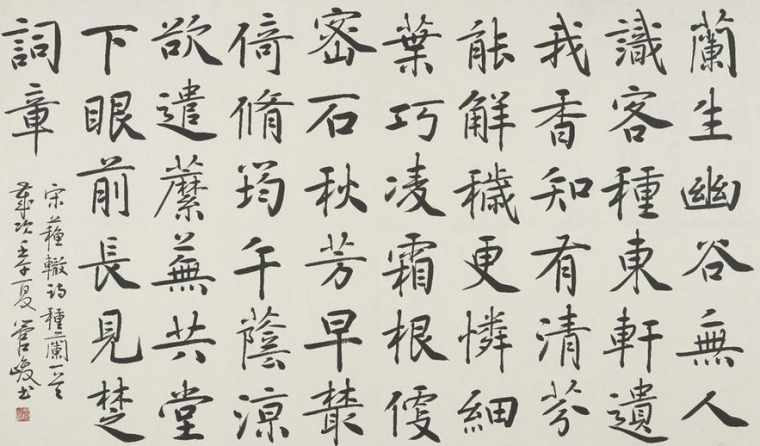 蘭生幽谷無人
識客種東軒遺
我香知有清芬
能解穢更憐細
葉巧凌霜根便
密石秋芳早叢
倚脩筠午蔭涼
欲遣蘼蕪共堂
下眼前長見楚
詞章
宋蘇轍詩種蘭一首
歲次壬午夏管峻书